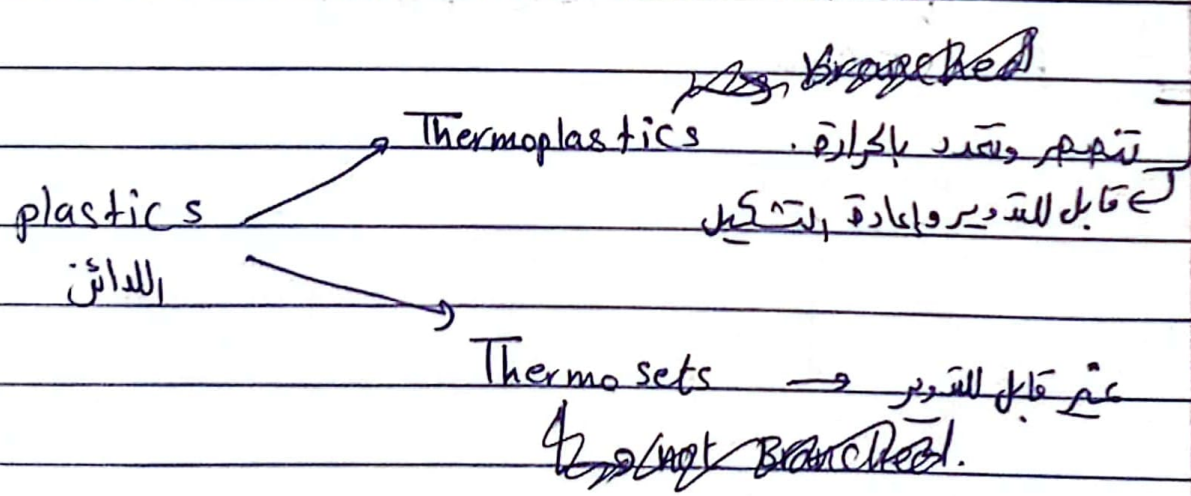 Branched
Thermoplastics تنصهر وتتمدد بالحرارة.
plastics قابل للتدوير وإعادة التشكيل
اللدائن
Thermosets → غير قابل للتدوير
not Branched.